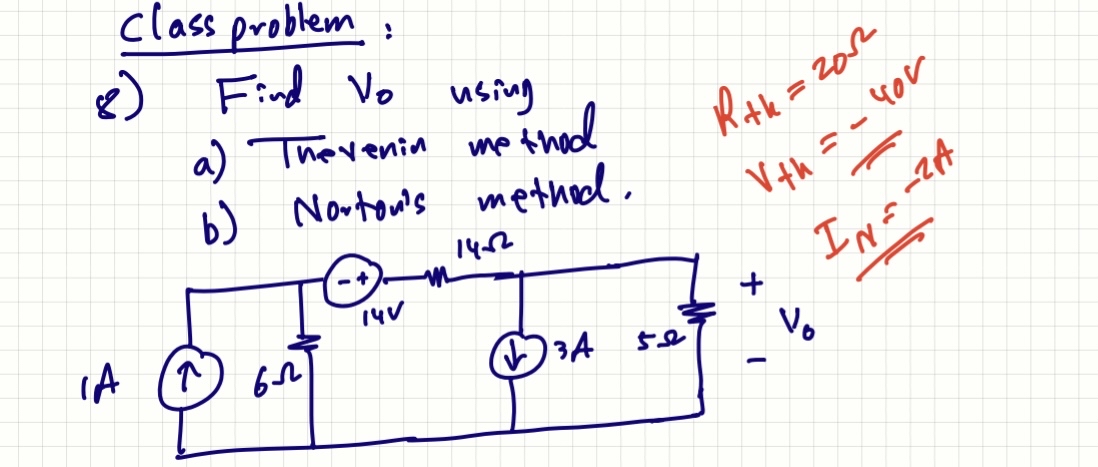 Class problem :
8) Find Vo using
a) Thevenin method
b) Norton's method.
Rth = 20Ω
Vth = -40V
IN = -2A
14Ω
- +
14V
1A
6Ω
3A
5Ω
+
Vo
-